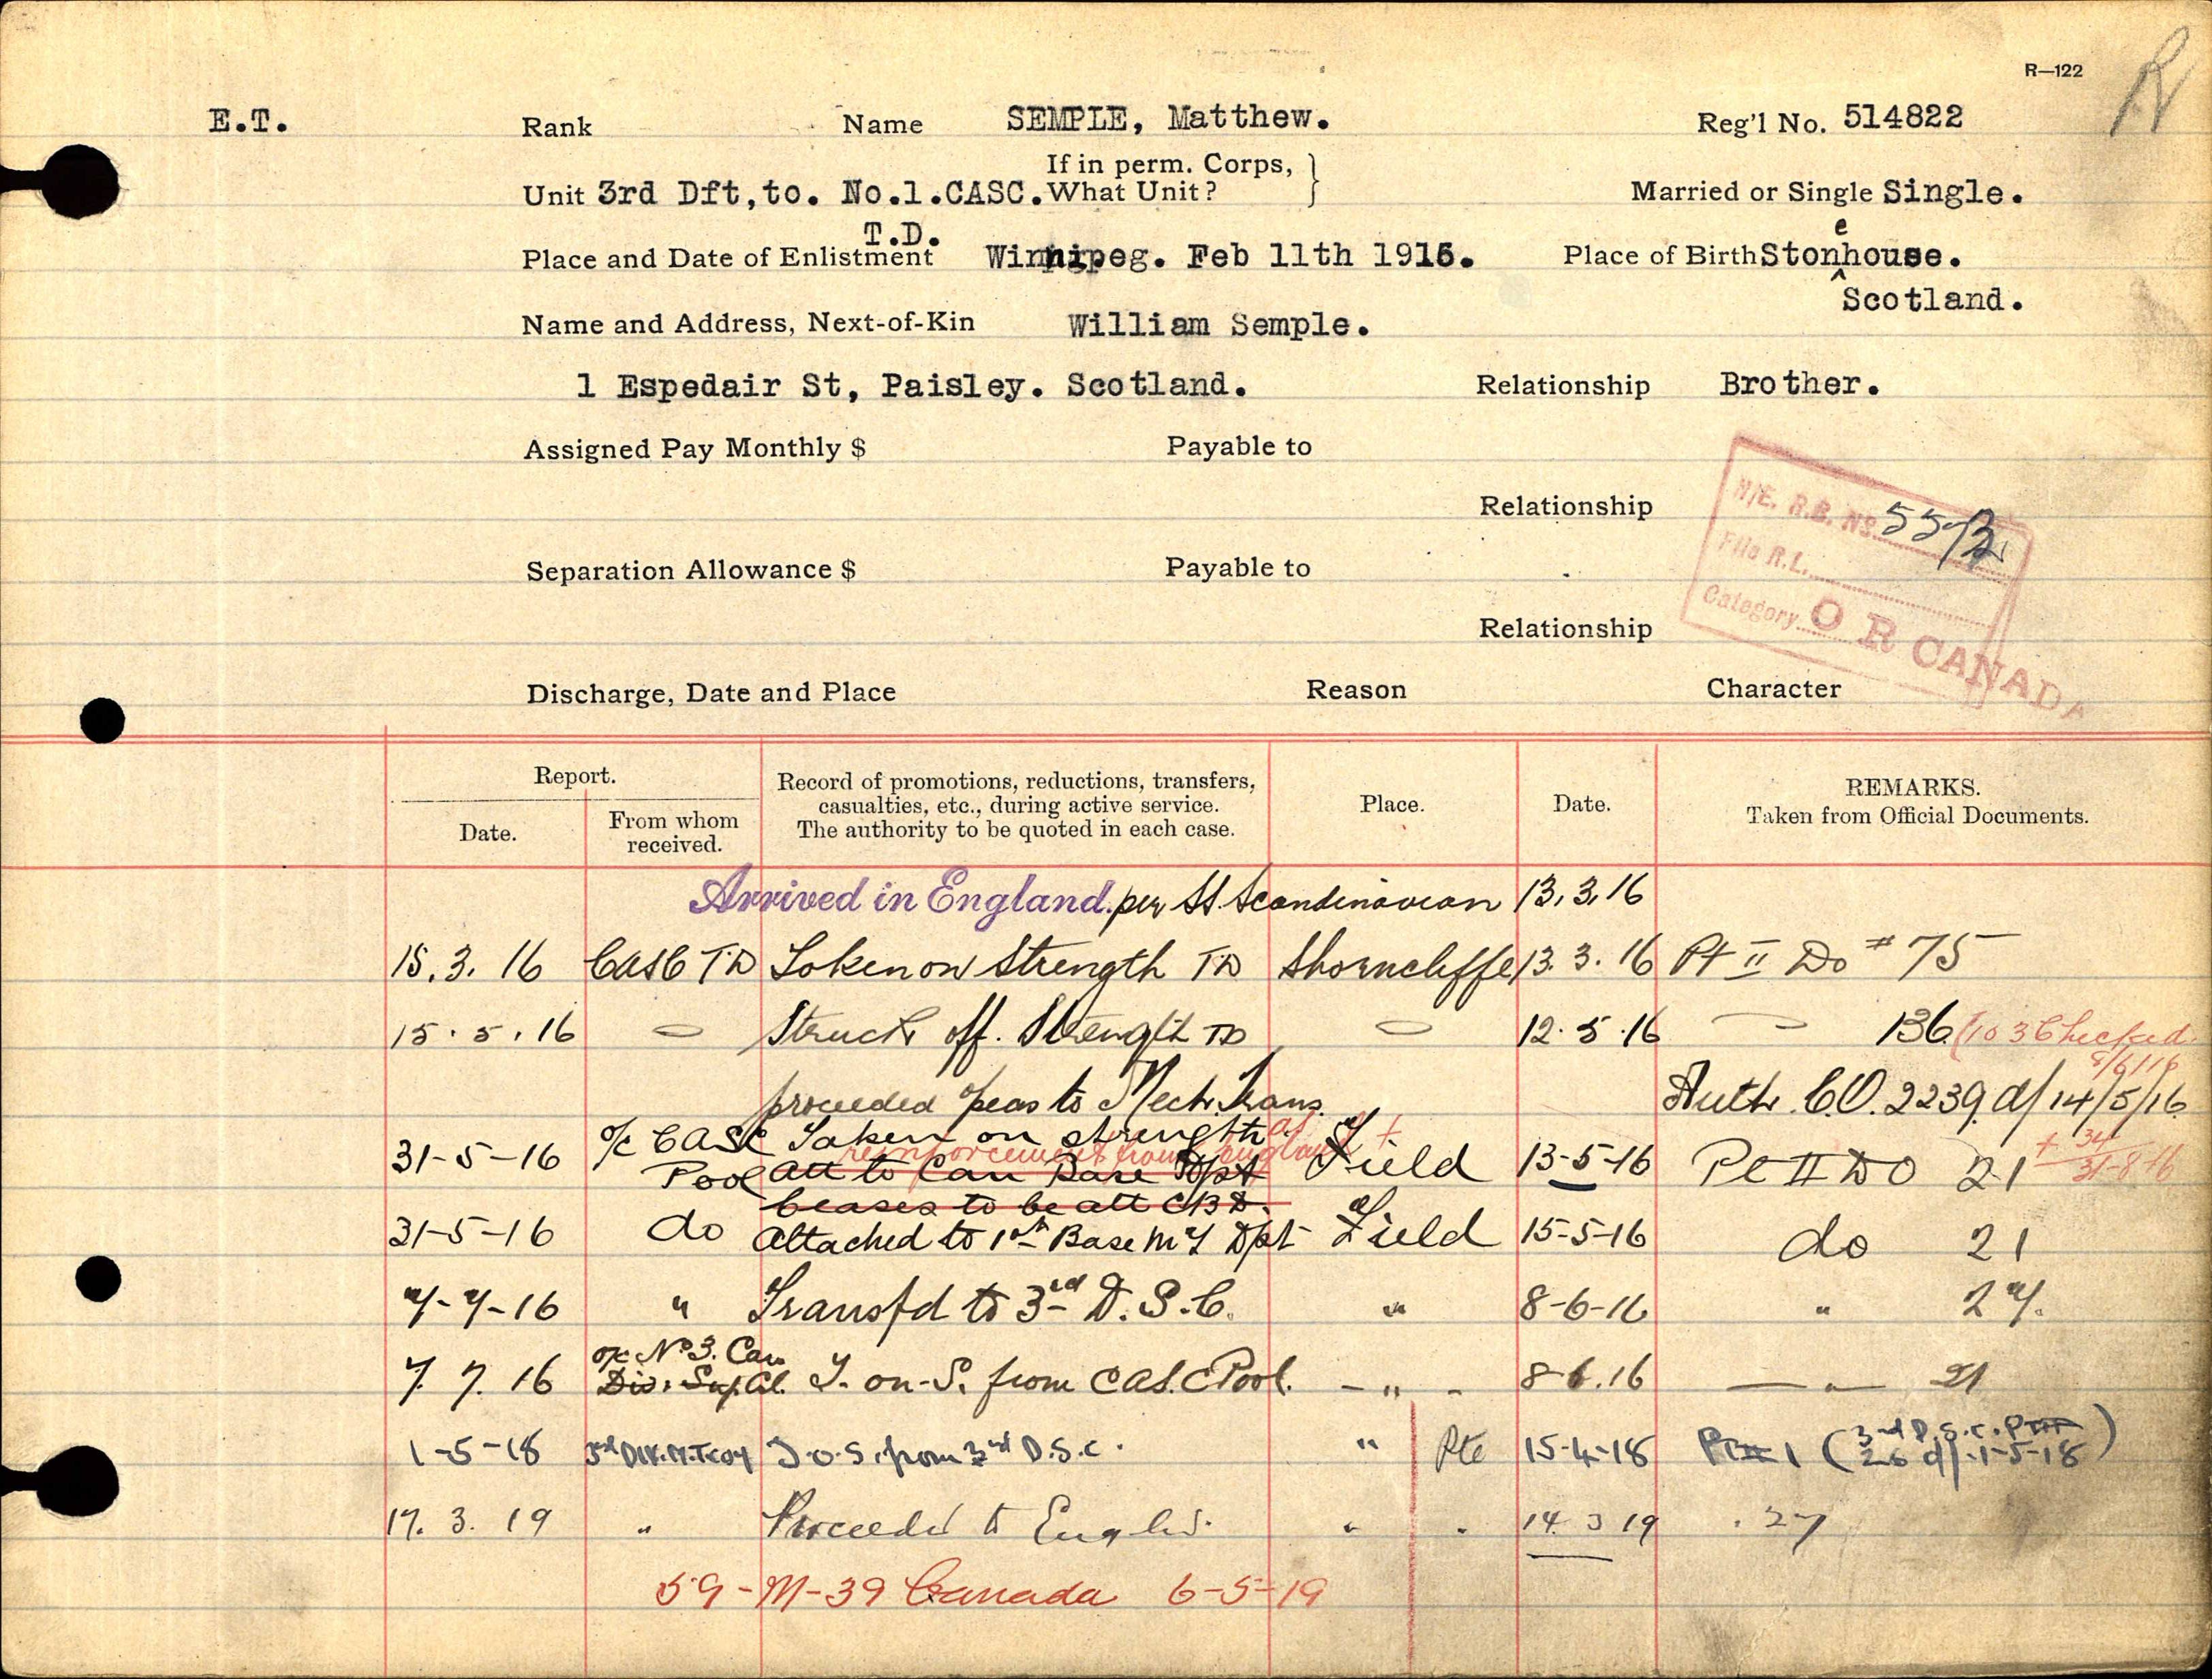 R—122
E.T. Rank Name SEMPLE, Matthew. Reg'l No. 514822
If in perm. Corps,
Unit 3rd Dft,to. No.1.CASC. What Unit? Married or Single Single.
T.D.
Place and Date of Enlistment Winnipeg. Feb 11th 1916. Place of Birth Stonehouse.
Scotland.
Name and Address, Next-of-Kin William Semple.
1 Espedair St, Paisley. Scotland. Relationship Brother.
Assigned Pay Monthly $ Payable to
Relationship
N/E. R.B. No.
File R.L.
Category O R CANADA
Separation Allowance $ Payable to
Relationship
Discharge, Date and Place Reason Character
Report. Record of promotions, reductions, transfers, casualties, etc., during active service. The authority to be quoted in each case. Place. Date. REMARKS. Taken from Official Documents.
Date. From whom received.
Arrived in England. per SS. Scandinavian 13.3.16
15.3.16 CASC TD Taken on Strength TD Shorncliffe 13.3.16 Pt II Do # 75
15.5.16 Struck off. Strength TD 12.5.16 136 Checked
proceeded o/seas to Mech. Trans. Auth. C.O. 2239 d/ 14/5/16
31-5-16 o/c CASC Taken on strength as Field 13-5-16 Pt II DO 21
reinforcement from England
Pool att to Can Base Dpt
Ceases to be att CBD.
31-5-16 do Attached to 1st Base MT Dpt Field 15-5-16 do 21
7-7-16 " Transfd to 3rd D.S.C. " 8-6-16 " 27.
o/c No 3. Can
7.7.16 Div. Sup. Col. T. on-S. from CASC Pool. - " - 8.6.16 — " — 21
1-5-18 3rd DIV.M.T.Coy T.O.S. from 3rd D.S.C. " Pte 15-4-18 Pt II 1 (3rd D.S.C. Pt II 26 d/. 1-5-18)
17.3.19 " Proceeded to England. " " 14 3 19 " 27
59-M-39 Canada 6-5-19